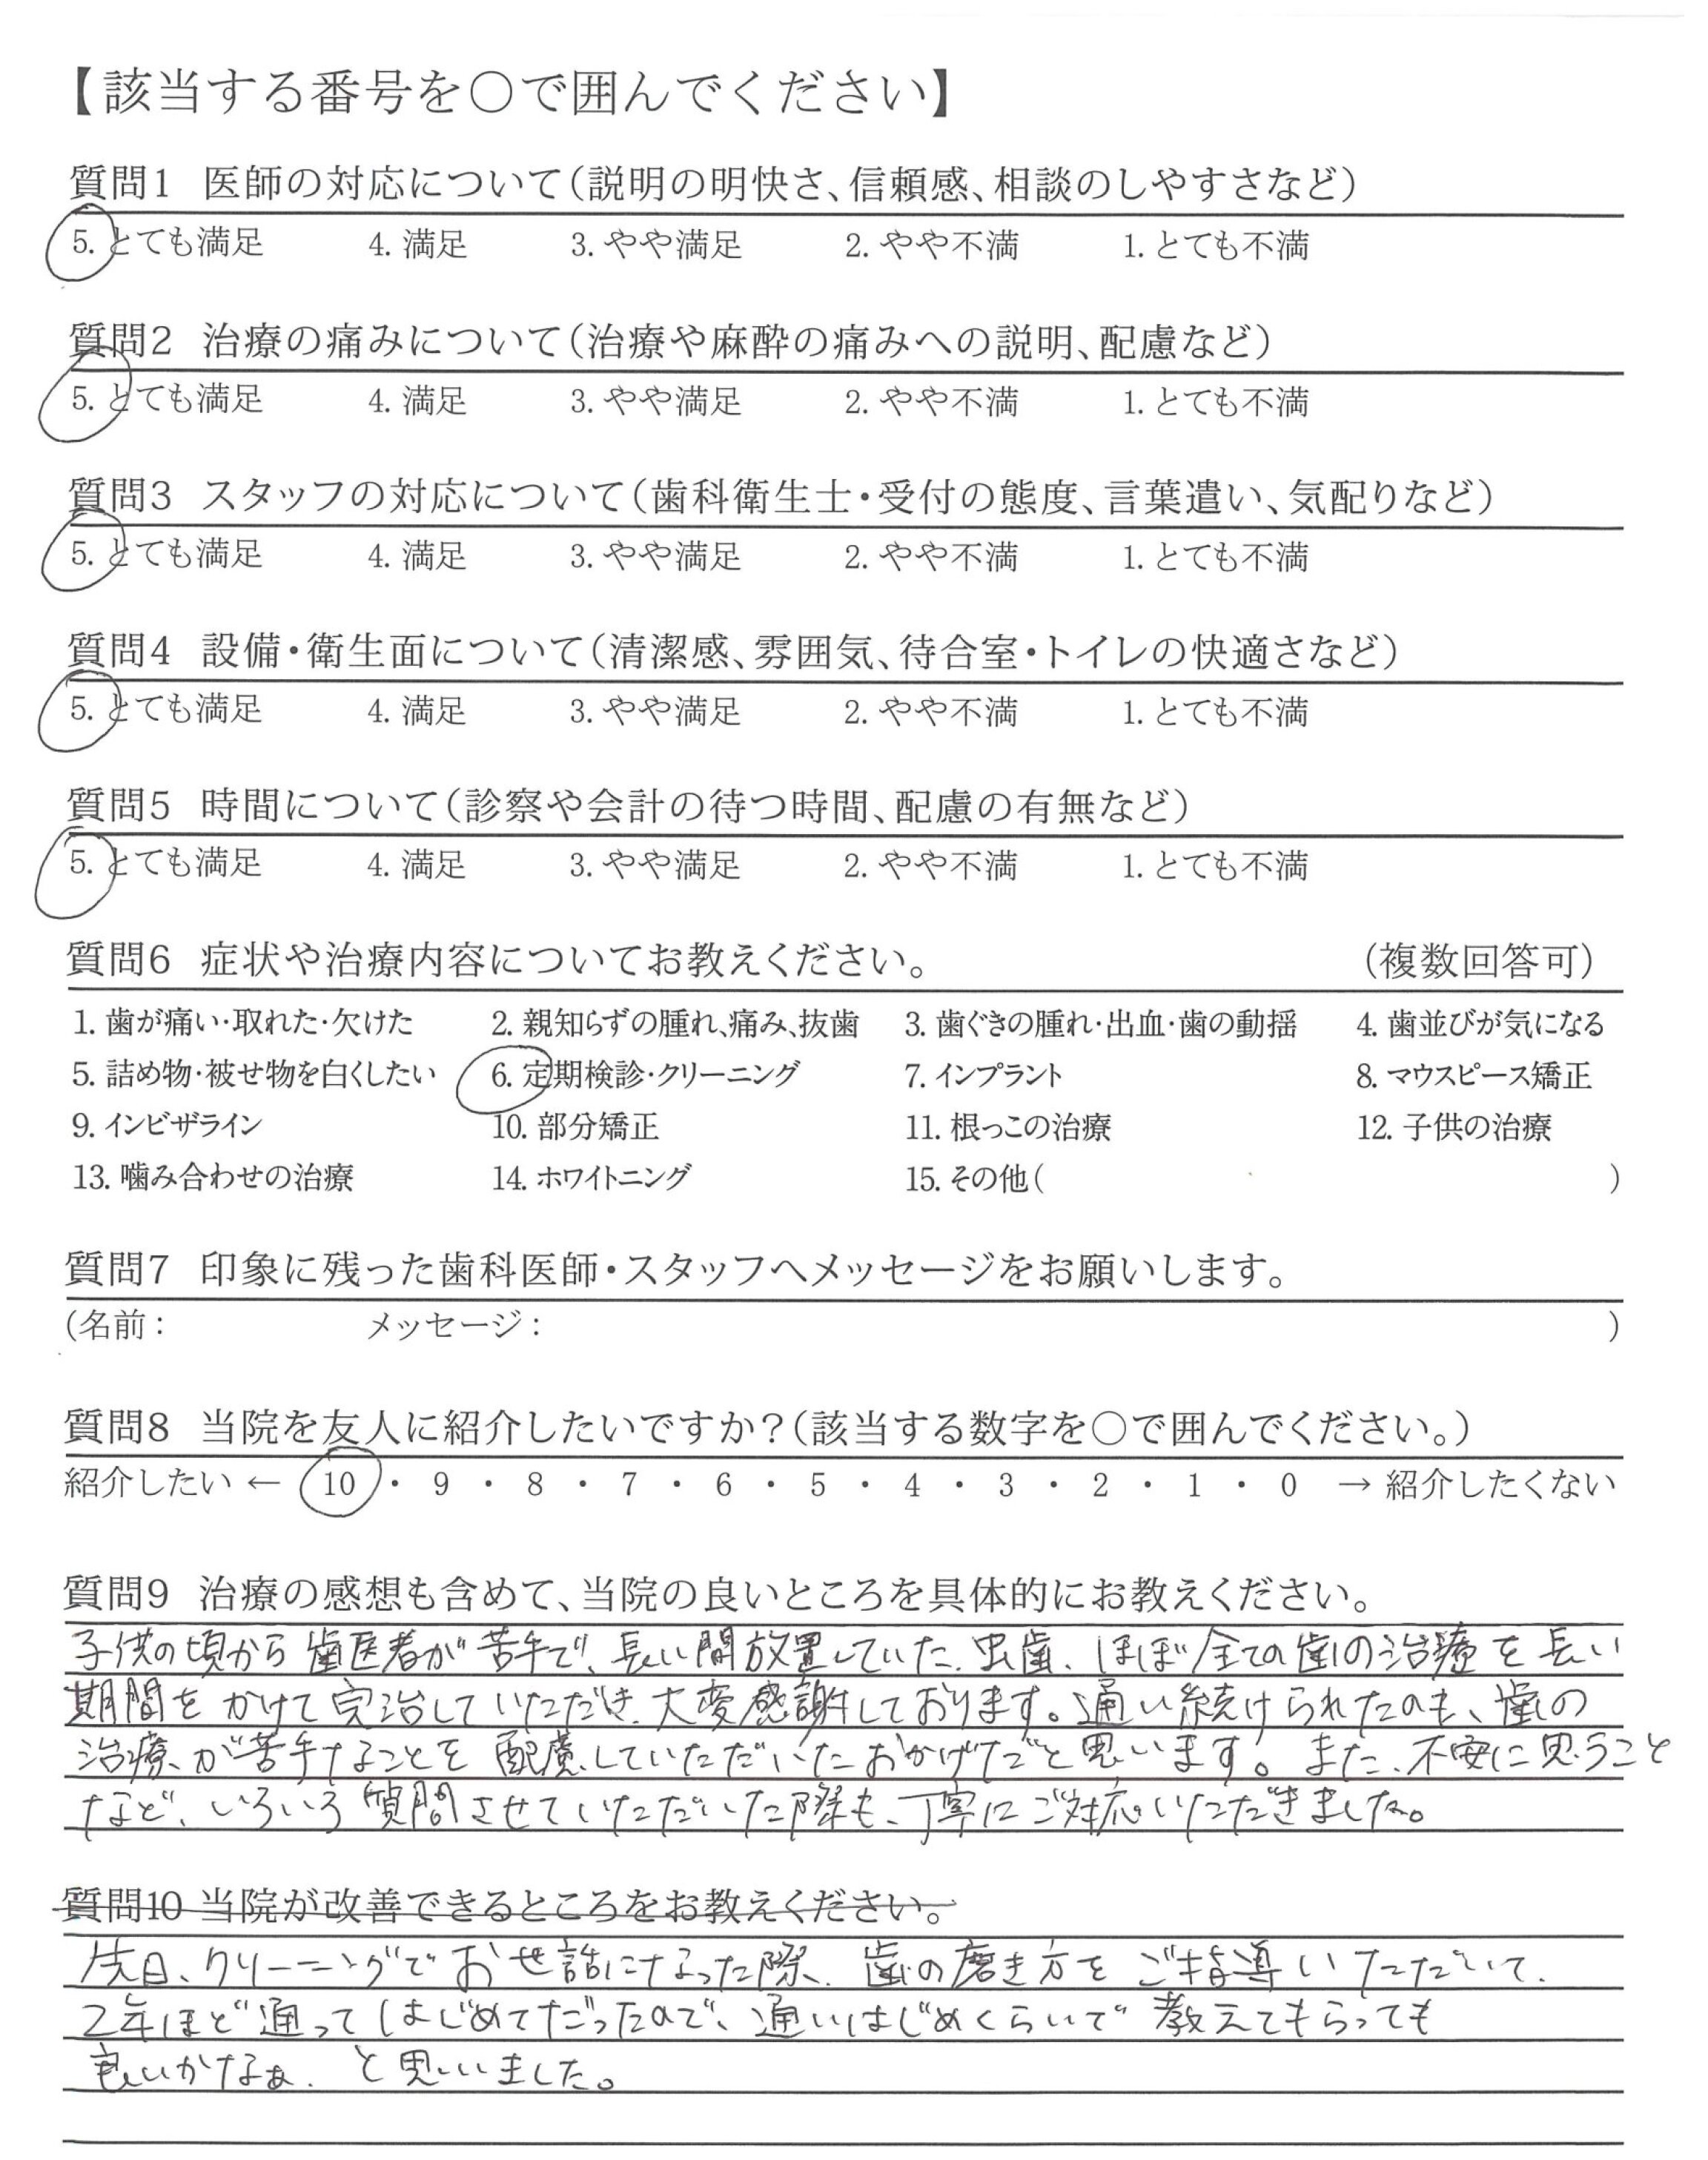 【該当する番号を○で囲んでください】
質問1 医師の対応について(説明の明快さ、信頼感、相談のしやすさなど)
5. とても満足 4. 満足 3. やや満足 2. やや不満 1. とても不満
質問2 治療の痛みについて(治療や麻酔の痛みへの説明、配慮など)
5. とても満足 4. 満足 3. やや満足 2. やや不満 1. とても不満
質問3 スタッフの対応について(歯科衛生士・受付の態度、言葉遣い、気配りなど)
5. とても満足 4. 満足 3. やや満足 2. やや不満 1. とても不満
質問4 設備・衛生面について(清潔感、雰囲気、待合室・トイレの快適さなど)
5. とても満足 4. 満足 3. やや満足 2. やや不満 1. とても不満
質問5 時間について(診察や会計の待つ時間、配慮の有無など)
5. とても満足 4. 満足 3. やや満足 2. やや不満 1. とても不満
質問6 症状や治療内容についてお教えください。 (複数回答可)
1. 歯が痛い・取れた・欠けた 2. 親知らずの腫れ、痛み、抜歯 3. 歯ぐきの腫れ・出血・歯の動揺 4. 歯並びが気になる
5. 詰め物・被せ物を白くしたい 6. 定期検診・クリーニング 7. インプラント 8. マウスピース矯正
9. インビザライン 10. 部分矯正 11. 根っこの治療 12. 子供の治療
13. 噛み合わせの治療 14. ホワイトニング 15. その他( )
質問7 印象に残った歯科医師・スタッフへメッセージをお願いします。
(名前: メッセージ: )
質問8 当院を友人に紹介したいですか?(該当する数字を○で囲んでください。)
紹介したい ← 10 ・ 9 ・ 8 ・ 7 ・ 6 ・ 5 ・ 4 ・ 3 ・ 2 ・ 1 ・ 0 → 紹介したくない
質問9 治療の感想も含めて、当院の良いところを具体的にお教えください。
子供の頃から歯医者が苦手で、長い間放置していた、虫歯、ほぼ全ての歯の治療を長い
期間をかけて完治していただき、大変感謝しております。通い続けられたのも、歯の
治療が苦手なことを配慮していただいたおかげだと思います。また、不安に思うこと
など、いろいろ質問させていただいた際も、丁寧にご対応いただきました。
質問10 当院が改善できるところをお教えください。
先日、クリーニングでお世話になった際、歯の磨き方をご指導いただいて、
2年ほど通ってはじめてだったので、通いはじめくらいで教えてもらっても
良いかなぁ、と思いました。